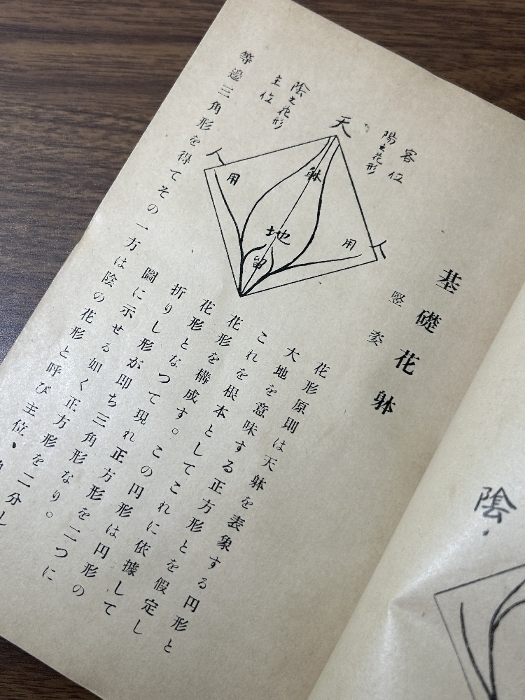 基礎花躰
竪姿
客位
陽之花形
天
人
人
躰
用
用
地
留
陰之花形
主位
花形原則は天躰を表象する円形と
大地を意味する正方形とを假定し
これを根本としてこれに依據して
花形を構成す。この円形は円形の
花形となつて現れ正方形を二つに
折りし形が即ち三角形なり。
圖に示せる如く正方形を二分し
等邊三角形を得てその一方は陰の花形と呼び主位、
陰